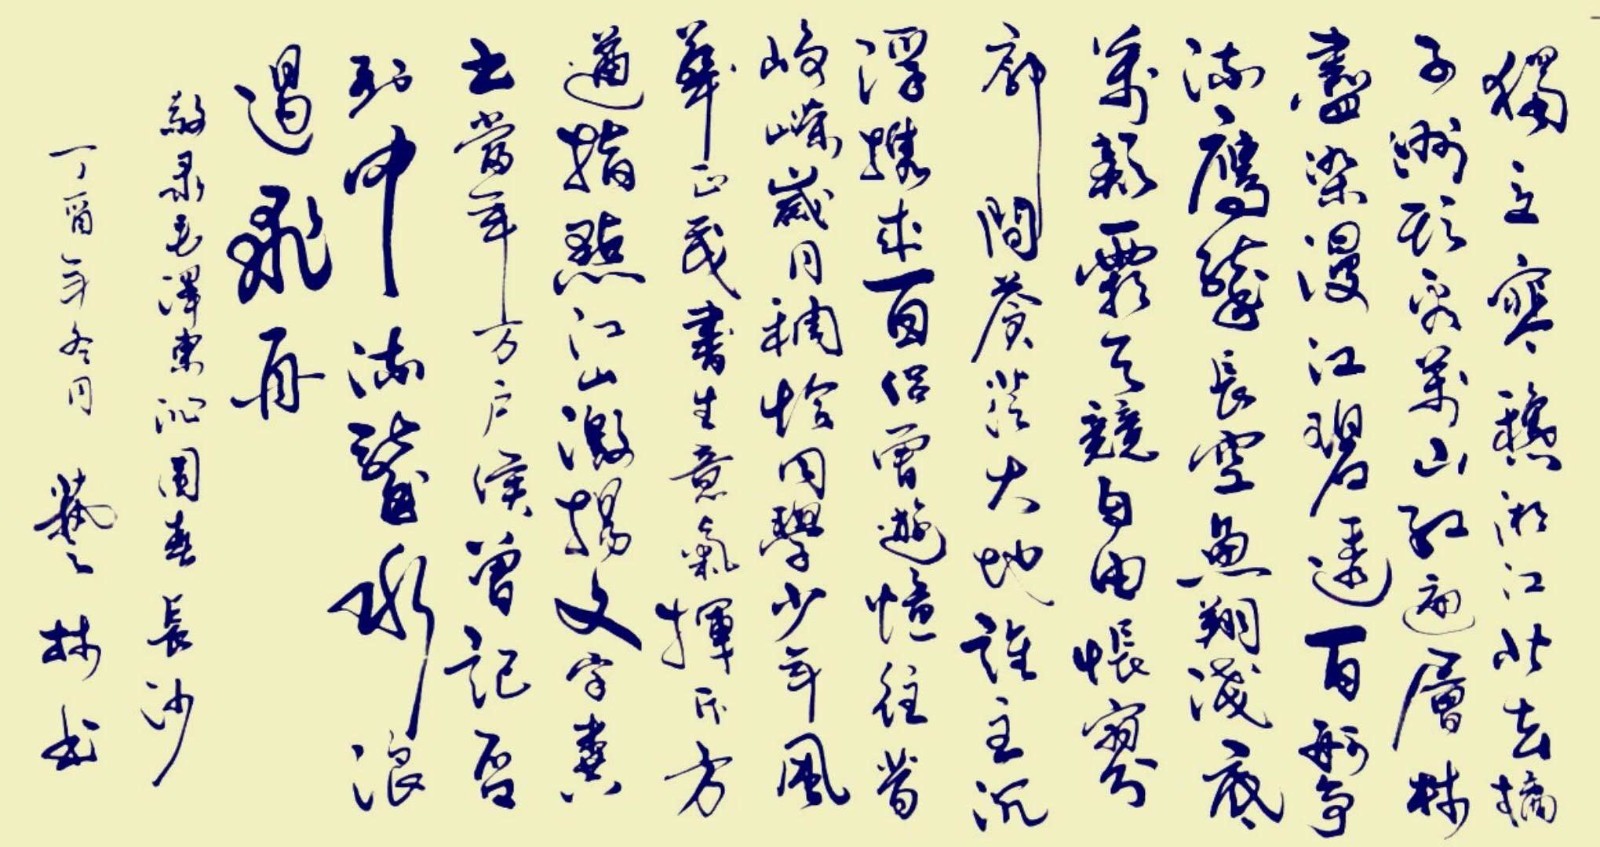 獨立寒秋湘江北去橘
子洲頭看萬山紅遍層林
盡染漫江碧透百舸爭
流鷹擊長空魚翔淺底
萬類霜天競自由悵寥
廓問蒼茫大地誰主沉
浮攜來百侶曾遊憶往昔
崢嶸歲月稠恰同學少年風
華正茂書生意氣揮斥方
遒指點江山激揚文字糞
土當年万户侯曾記否
到中流擊水浪
遏飛舟
敬录毛澤東沁園春長沙
丁酉年冬月 藝林书